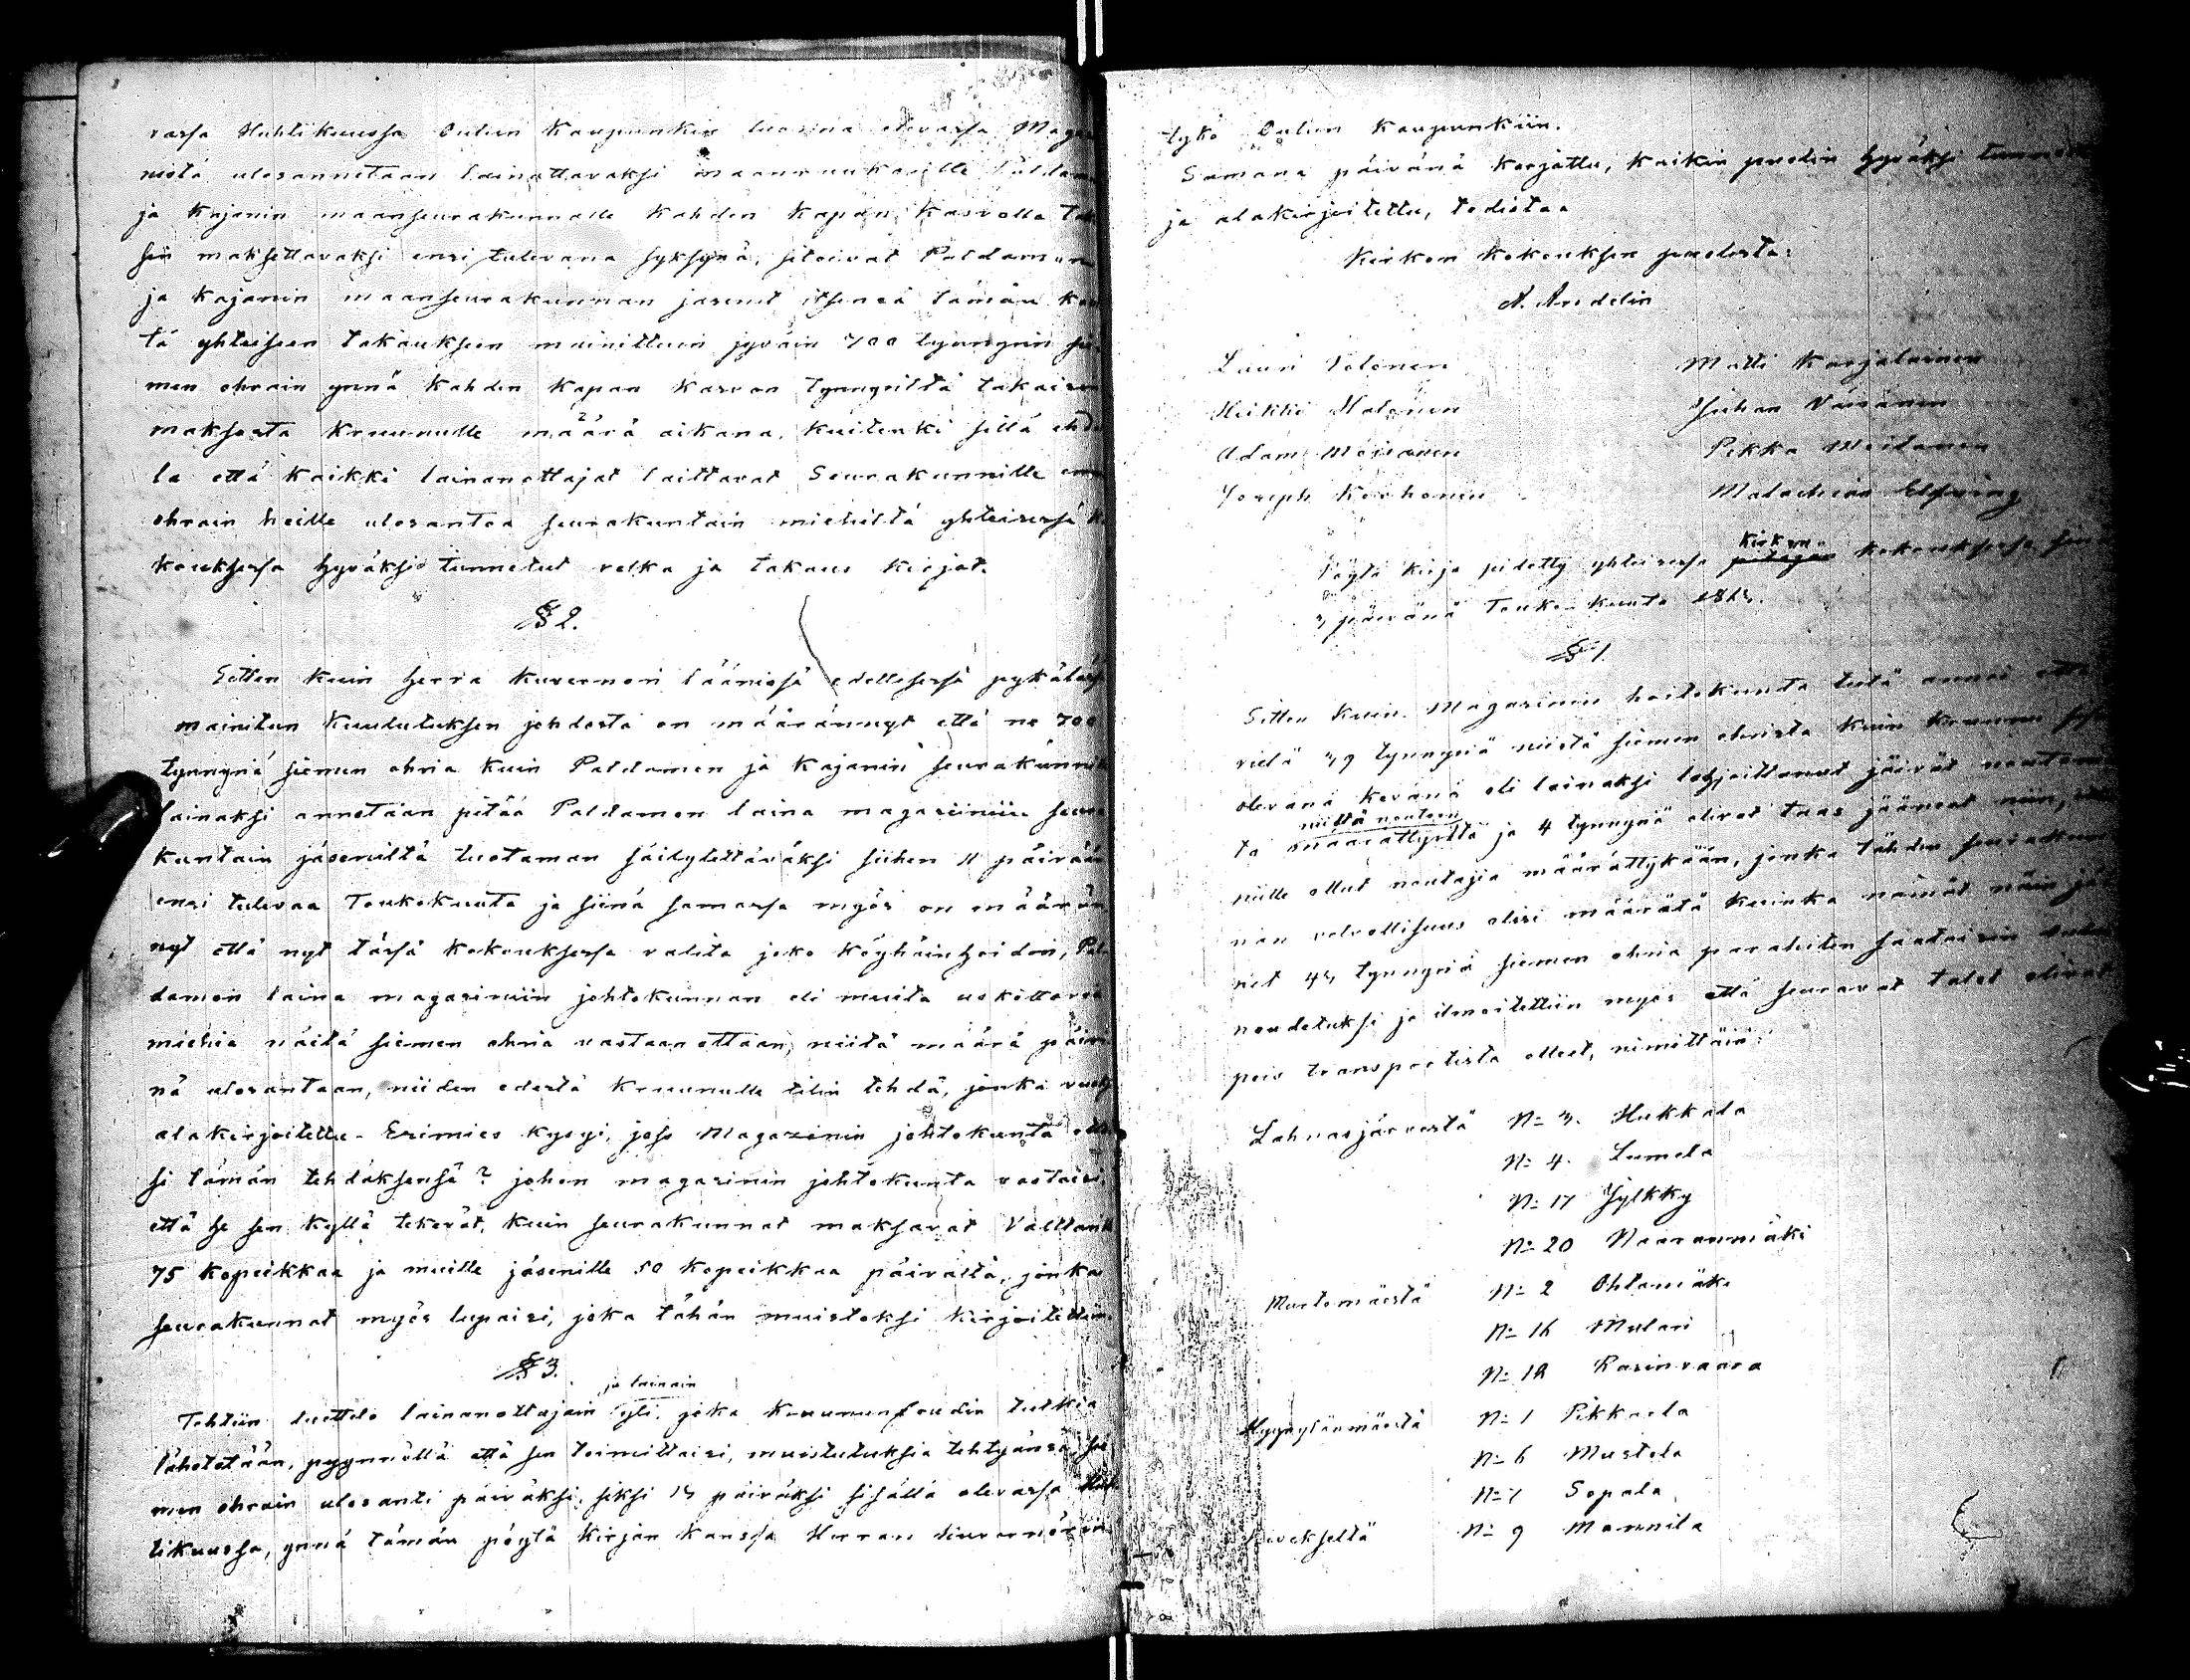 vassa Huhtikuussa Oulun Kaupunkin luoona olevassa Maga
nistä ulosannetaan lainattavaksi maanruukarille Paldam
ja Kajanin maanseurakunnalle Kahden Kapan Kasvolla
sin maksettavaksi ensi tulevana syksynä, sitoivat Paldamon
ja Kajanin maanseurakunnan jäsenet itsensä tämän
tä yhteiseen takaukseen mainittuin jyväin 700 tynnyrin
men ohrain ynnä Kahden Kapan Kasvon tynnyriltä takaisin
maksosta Kruunulle määrä aikana, Kuitenki sillä
la että Kaikki lainanottajat laittavat Seurakunnille
ohrain heille ulosantoa seurakuntain miehiltä yhteisessä
kouksessa hyväksi tunnetut velka ja takaus kirjat.
§ 2.
Sitten kuin Herra Kuvernöri läänissä edellisessä pykäläs
mainitun Kuulutuksen johdosta on määrännyt että ne 700
tynnyriä siemen ohria kuin Paldamon ja Kajanin seurakunn
lainaksi annetaan pitää Paldamon laina magasiiniin seura
kuntain jäseniltä tuotaman säilytettäväksi siihen 11 päivään
ensi tulevaa Toukokuuta ja siinä samassa myös on määrän
nyt että nyt tässä kokouksessa valita joko Köyhäinhoidon, Pal
damon laina magasiniin johtokunnan eli muita uskottavia
miehiä näitä siemen ohria vastaanottaan, niitä määrä päivi
nä ulosantaan, niiden edestä Kruunulle tilin tehdä, jonka
alakirjoitettu Esimies kysyi, jos Magazinin johtokunta
si tämän tehdäksensä? johon magasinin johtokunta vastaisi
että he sen kyllä tekevät, kuin seurakunnat maksavat
75 kopeikkaa ja muille jäsenille 50 kopeikkaa päivältä, jonka
seurakunnat myös lupaisi, joka tähän muistoksi kirjoitettiin.
§ 3.
ja lainain
Tehtiin luettelo lainanottajain yli, joka Kruununfoudin tutkia
lähetetään, pyynnöllä että sen toimittaisi, muistutuksia tehtyänsä,
men ohrain ulosanti päiväksi, siksi 13 päiväksi sisällä olevassa Huh
tikuussa, ynnä tämän pöytä kirjan kanssa Herran Kuvernörin
tykö Oulun Kaupunkiin.
Samana päivänä korjattu, kaikin puolin hyväksi
ja alakirjoitettu, todistaa
Kirkon kokouksen puolesta:
A. Andelin
Lauri Tolonen Matti Karjalainen
Heikki Holonen Juhan Väisänen
Adam Moisanen Pekka Moilanen
Joseph Korhonen Malachias Elfving
Pöytä kirja pidetty yhteisessä Kirkon kokouksessa
3 päivänä Touko-kuuta
§ 1.
Sitten kuin Magasinin hoitokunta tietä annoi että
vielä 39 tynnyriä niistä siemen ohrista kuin kruunu
olevana kevänä oli lainaksi jäivät
niittä noutoon
ta määrätty ja 4 tynnyriä olivat taas jääneet niin,
niille ollut noutajia määrättykään, jonka tähden seurakun
nan velvollisuus olisi määrätä kuinka nämät näin jä
net 43 tynnyriä siemen ohria parahiten saataisin
noudetuksi ja ilmoitettiin myös että seuravat talot olivat
pois transportista olleet, nimittäin:
Lahnasjärvestä N:o 3. Hukkala
N:o 4. Lumela
N:o 17 Jylkky
N:o 20 Naaranmäki
Mustomäestä N:o 2 Ohtamäki
N:o 16 Mulari
N:o 18 Rasinvaara
Hyynylänmäestä N:o 1 Pikkula
N:o 6 Mustola
N:o 7 Sopala
N:o 9 Mannila